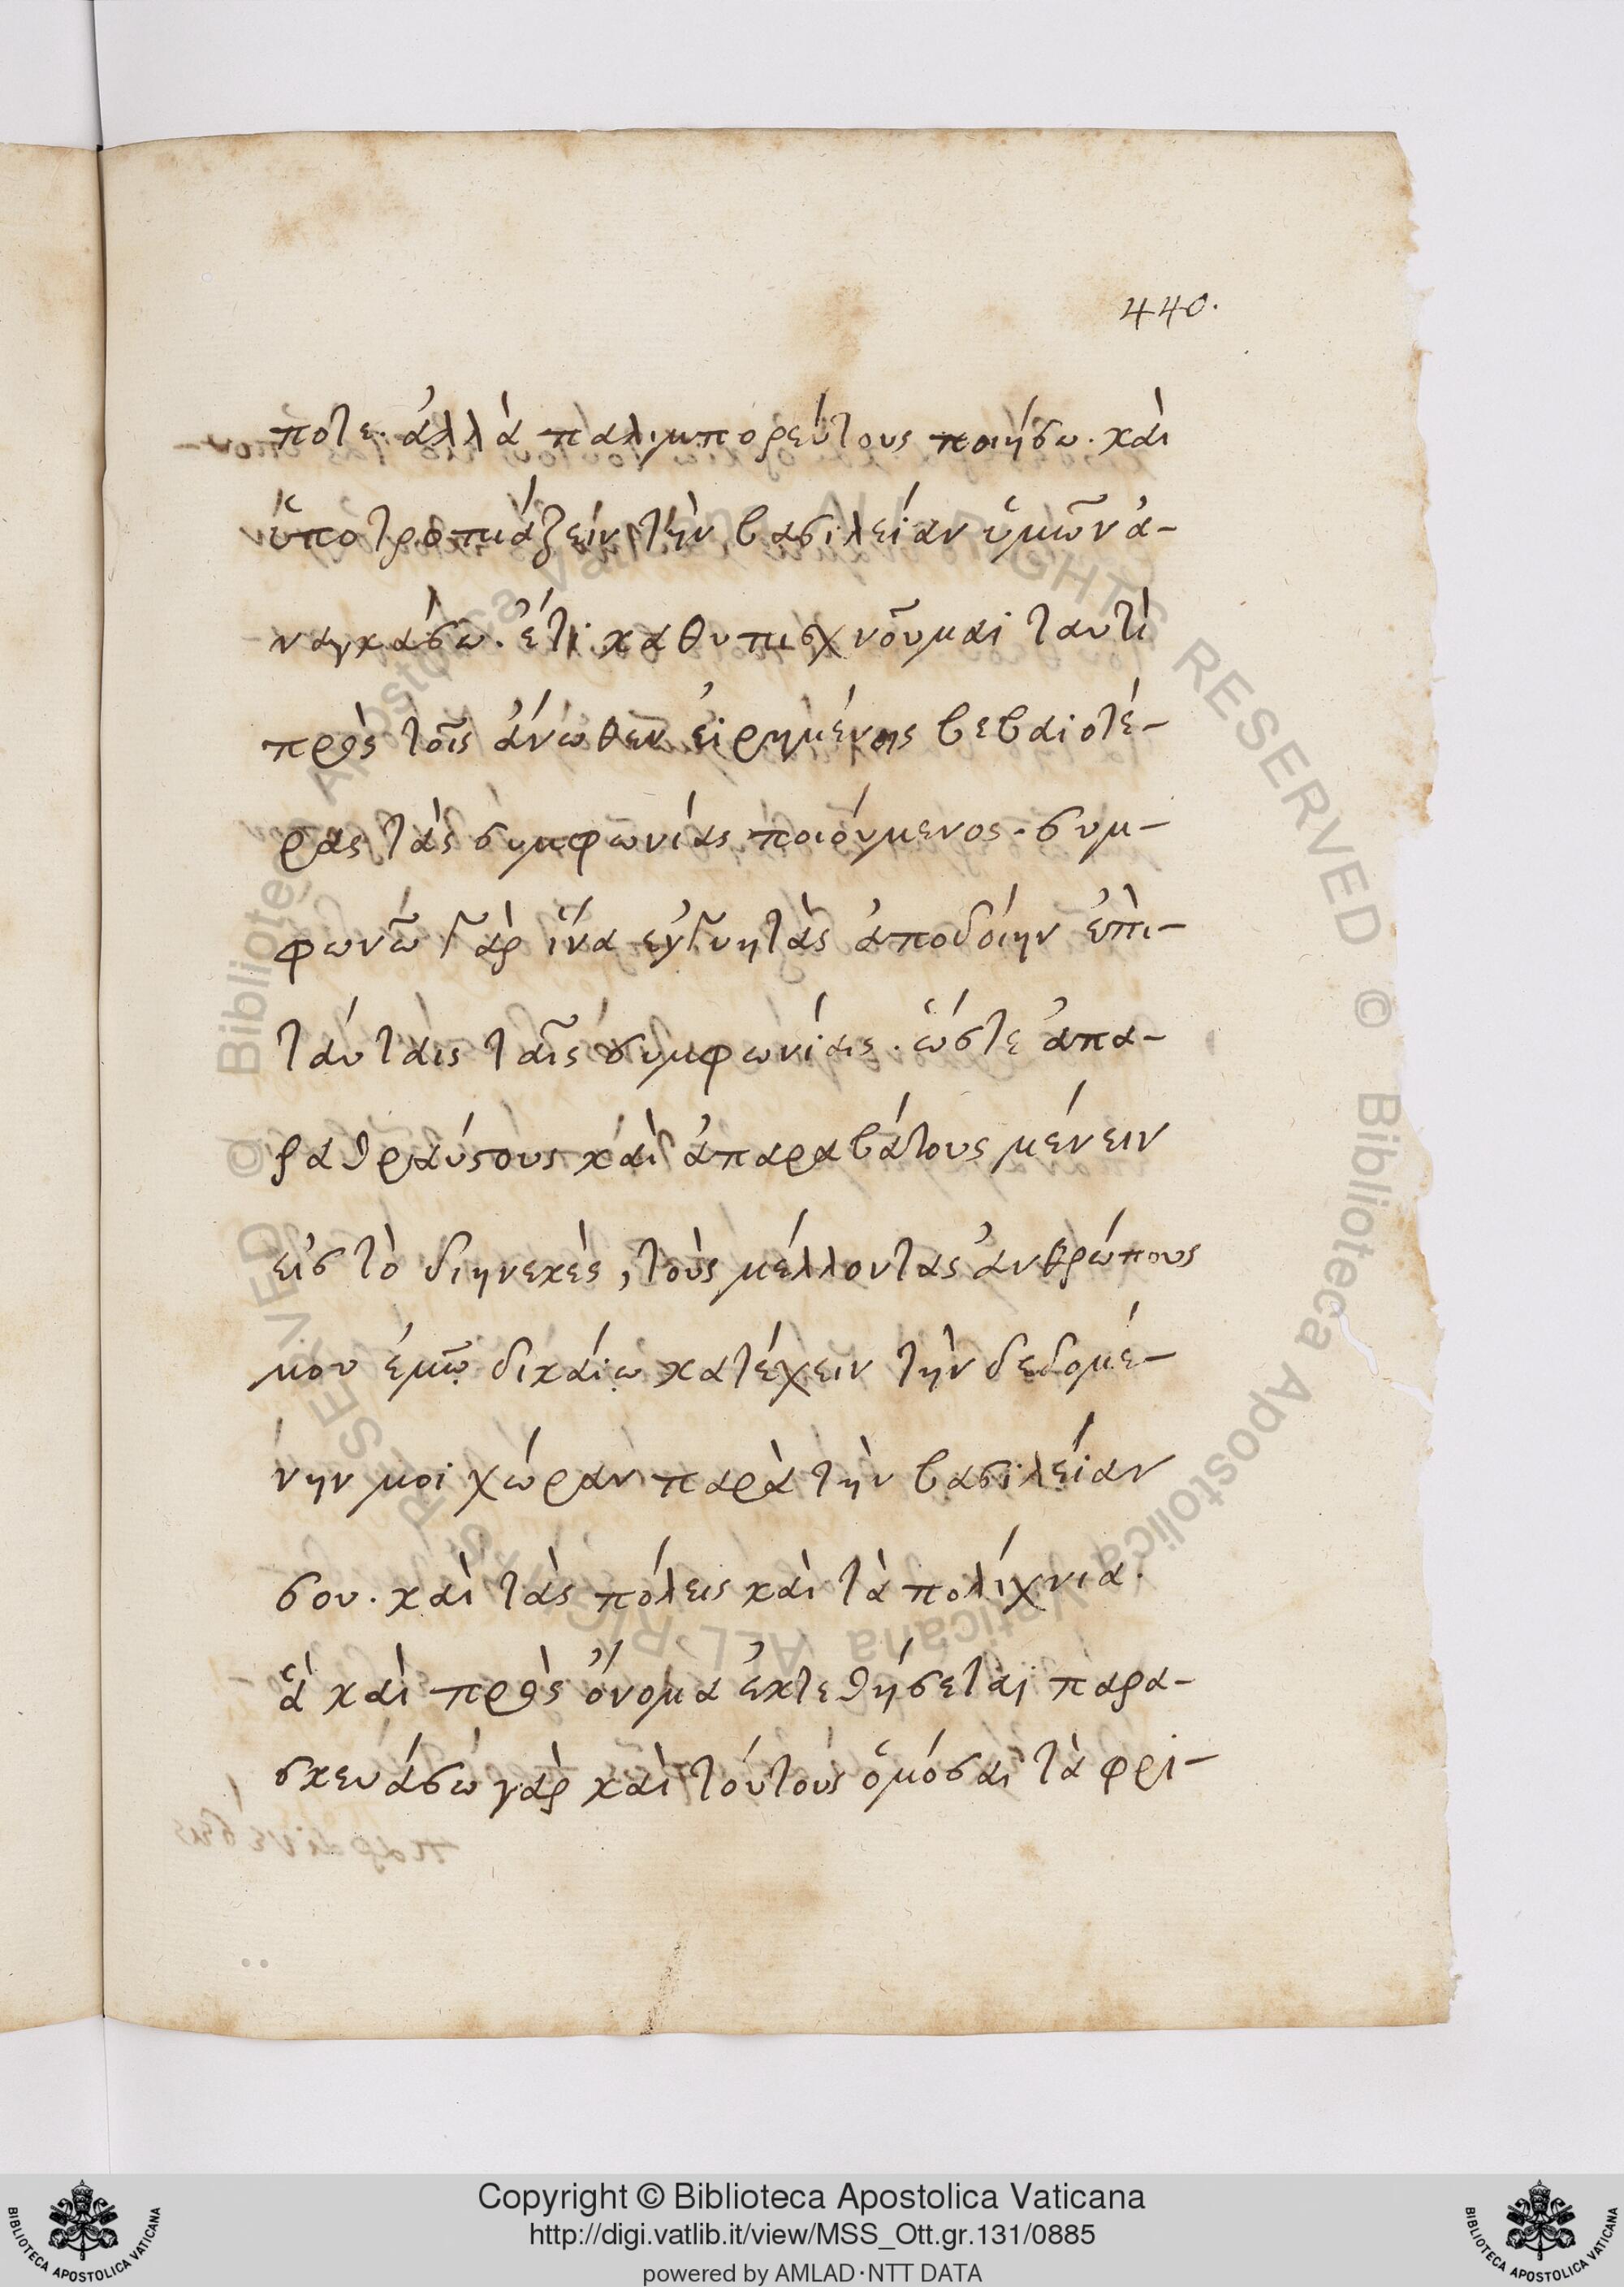 440.
ποτε. ἀλλὰ παλιμπορεύτους ποιήσω. καὶ
ὑποτροπιάζειν τὴν βασιλείαν ὑμῶν ἀ-
ναγκάσω. ἔτι καθυπισχνοῦμαι ταυτὶ
πρὸς τοῖς ἄνωθεν εἰρημένοις βεβαιοτέ-
ρας τὰς συμφωνίας ποιούμενος. συμ-
φωνῶ γὰρ ἵνα ἐγγυητὰς ἀποδοίην ἐπι-
ταύταις ταῖς συμφωνίαις. ὥστε ἀπα-
ραθραύστους καὶ ἀπαραβάτους μένειν
εἰς τὸ διηνεκὲς, τοὺς μέλλοντας ἀνθρώπους
μου ἐμῷ δικαίῳ κατέχειν τὴν δεδομέ-
νην μοι χώραν παρὰ τὴν βασιλείαν
σου. καὶ τὰς πόλεις καὶ τὰ πολίχνια.
ἃ καὶ πρὸς ὄνομα ἐκτεθήσεται παρα-
σκευάσω γὰρ καὶ τούτους ὀμόσαι τὰ φρι-
Copyright © Biblioteca Apostolica Vaticana
http://digi.vatlib.it/view/MSS_Ott.gr.131/0885
powered by AMLAD·NTT DATA
BIBLIOTECA APOSTOLICA VATICANA
BIBLIOTECA APOSTOLICA VATICANA
© Biblioteca Apostolica Vaticana ALL RIGHTS RESERVED © Biblioteca Apostolica Vaticana ALL RIGHTS RESERVED